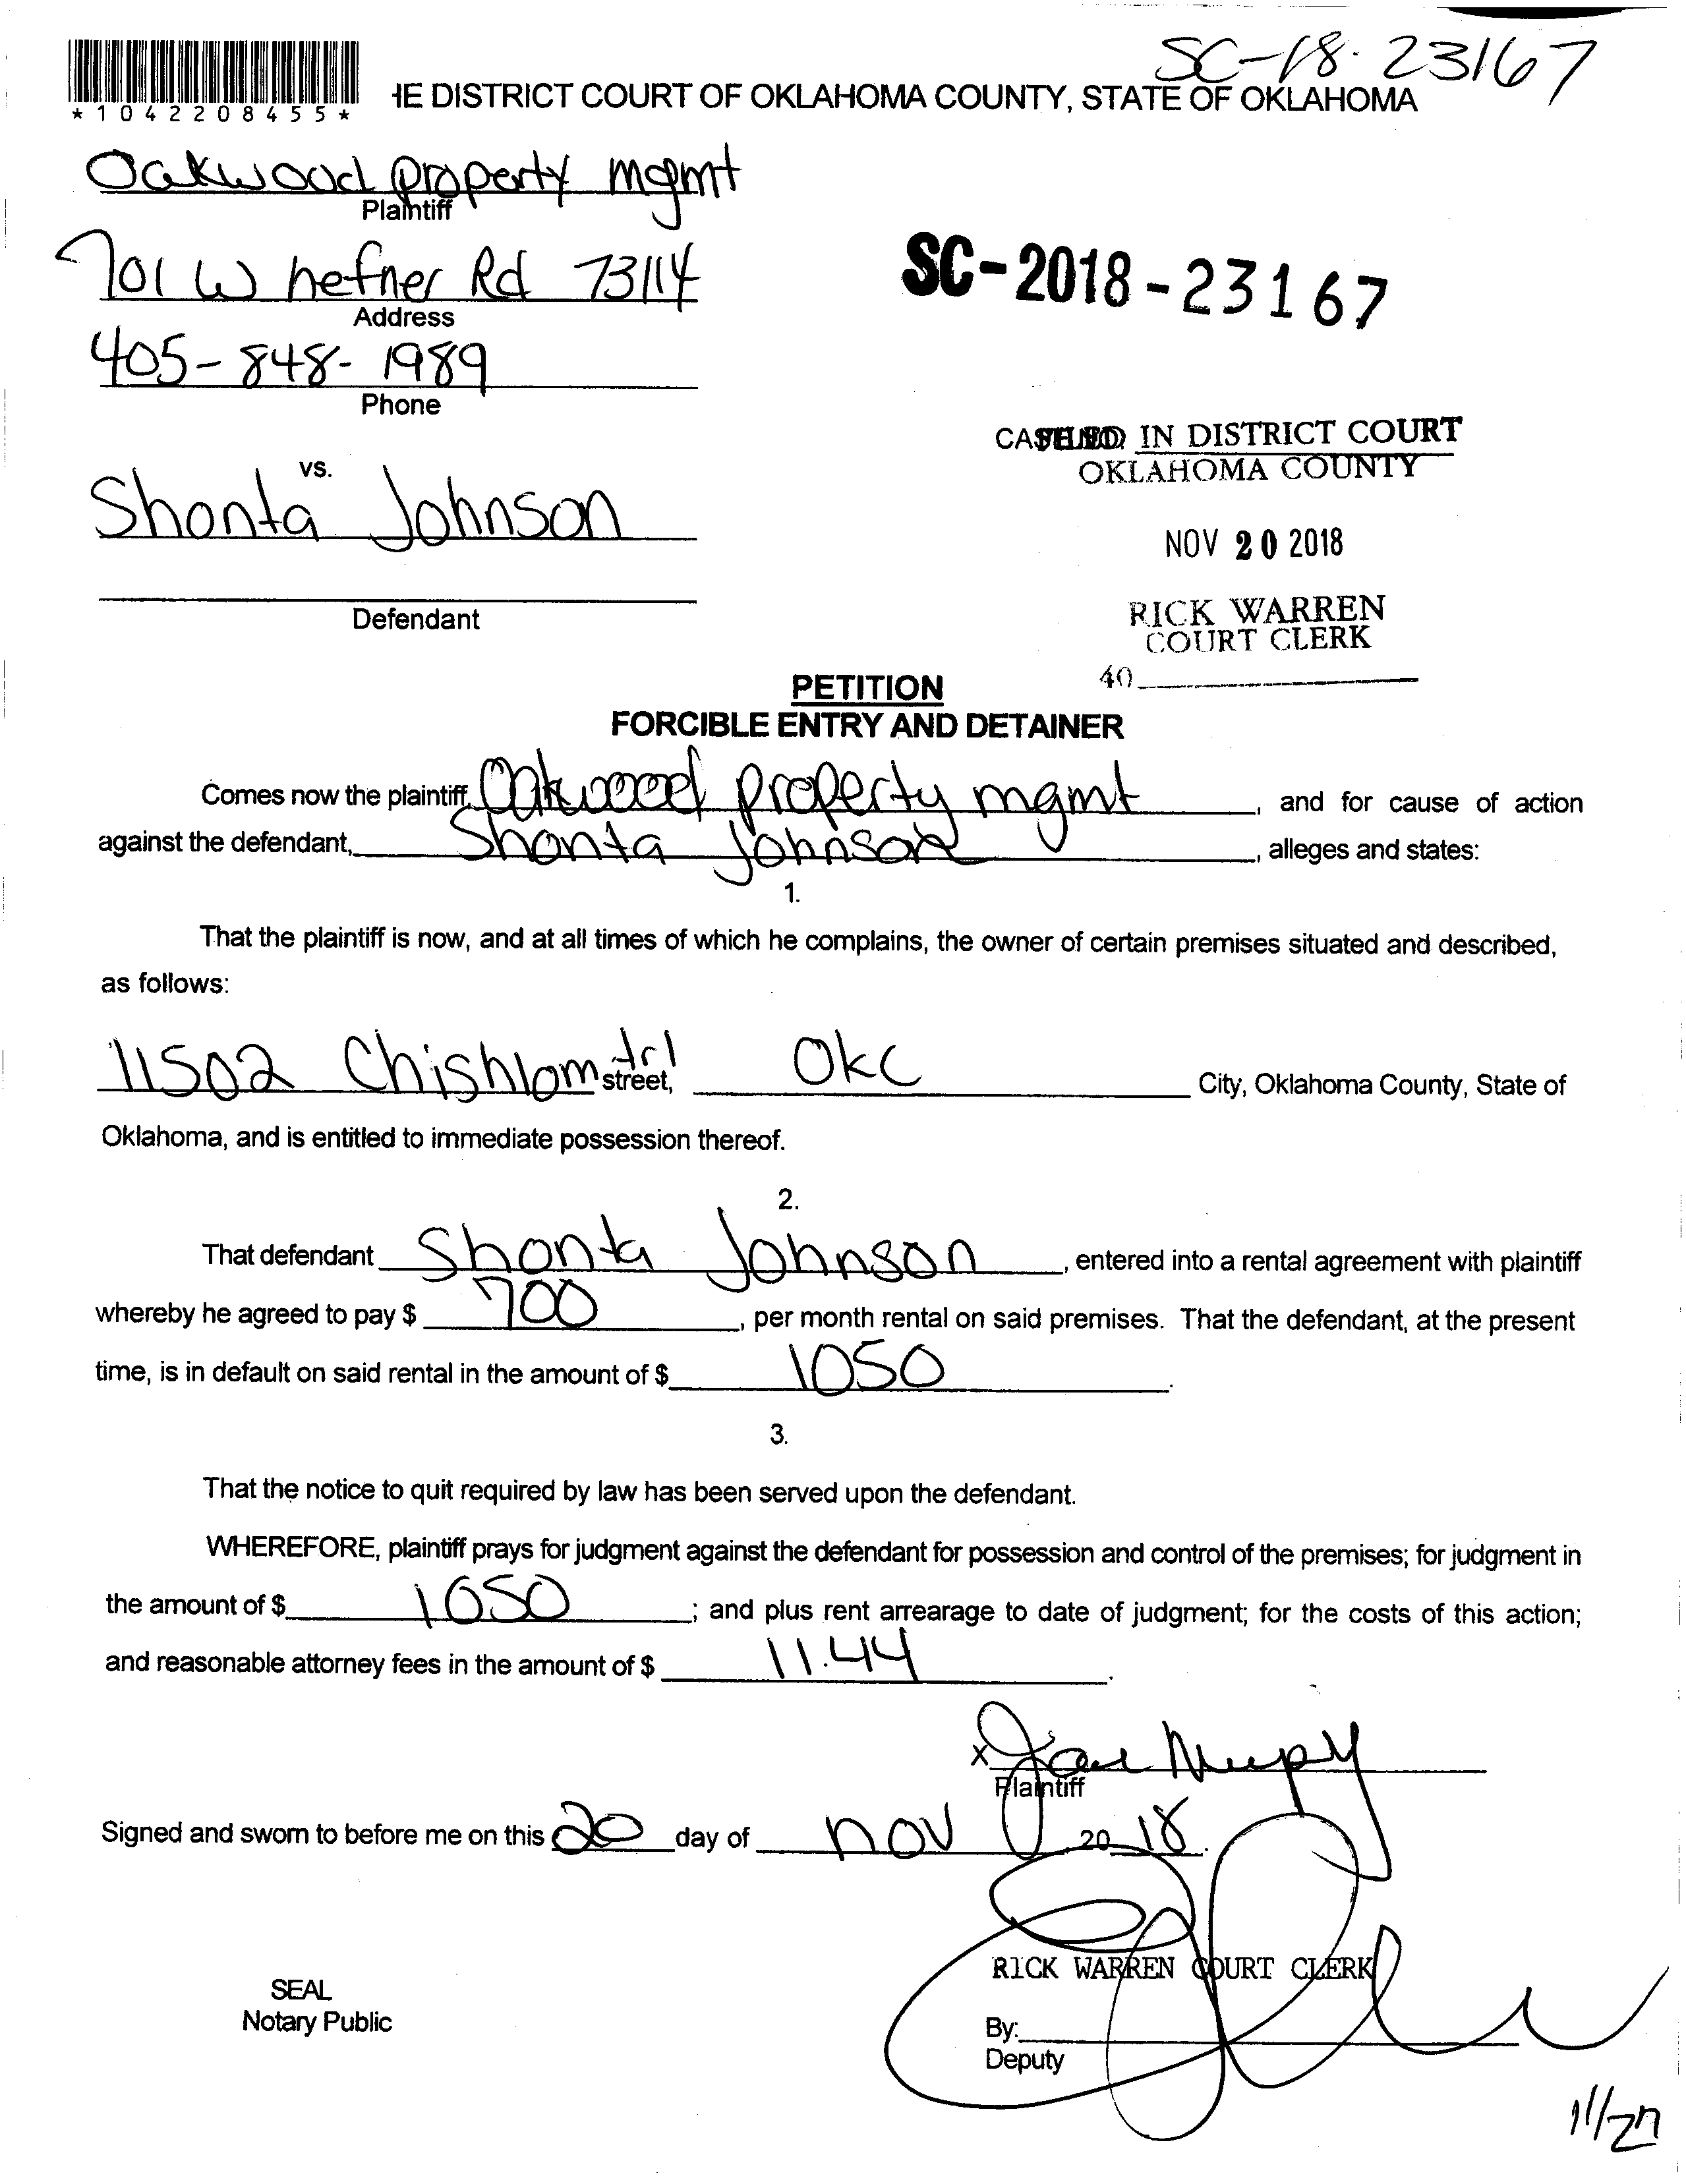 SC-18-23167
*1042208455*
HE DISTRICT COURT OF OKLAHOMA COUNTY, STATE OF OKLAHOMA
Oakwood property mgmt
Plaintiff
701 W hefner Rd 73114
Address
SC-2018-23167
405-848-1989
Phone
FILED IN DISTRICT COURT
OKLAHOMA COUNTY
vs.
Shonta Johnson
NOV 20 2018
Defendant
RICK WARREN
COURT CLERK
40
PETITION
FORCIBLE ENTRY AND DETAINER
Comes now the plaintiff, Oakwood property mgmt, and for cause of action
against the defendant, Shonta Johnson, alleges and states:
1.
That the plaintiff is now, and at all times of which he complains, the owner of certain premises situated and described,
as follows:
11502 Chishlom trl street, Okc City, Oklahoma County, State of
Oklahoma, and is entitled to immediate possession thereof.
2.
That defendant Shonta Johnson, entered into a rental agreement with plaintiff
whereby he agreed to pay $ 700, per month rental on said premises. That the defendant, at the present
time, is in default on said rental in the amount of $ 1050.
3.
That the notice to quit required by law has been served upon the defendant.
WHEREFORE, plaintiff prays for judgment against the defendant for possession and control of the premises; for judgment in
the amount of $ 1050; and plus rent arrearage to date of judgment; for the costs of this action;
and reasonable attorney fees in the amount of $ 11.44.
x
Plaintiff
Signed and sworn to before me on this 20 day of nov 20 18.
RICK WARREN COURT CLERK
SEAL
Notary Public
By:
Deputy
11/27